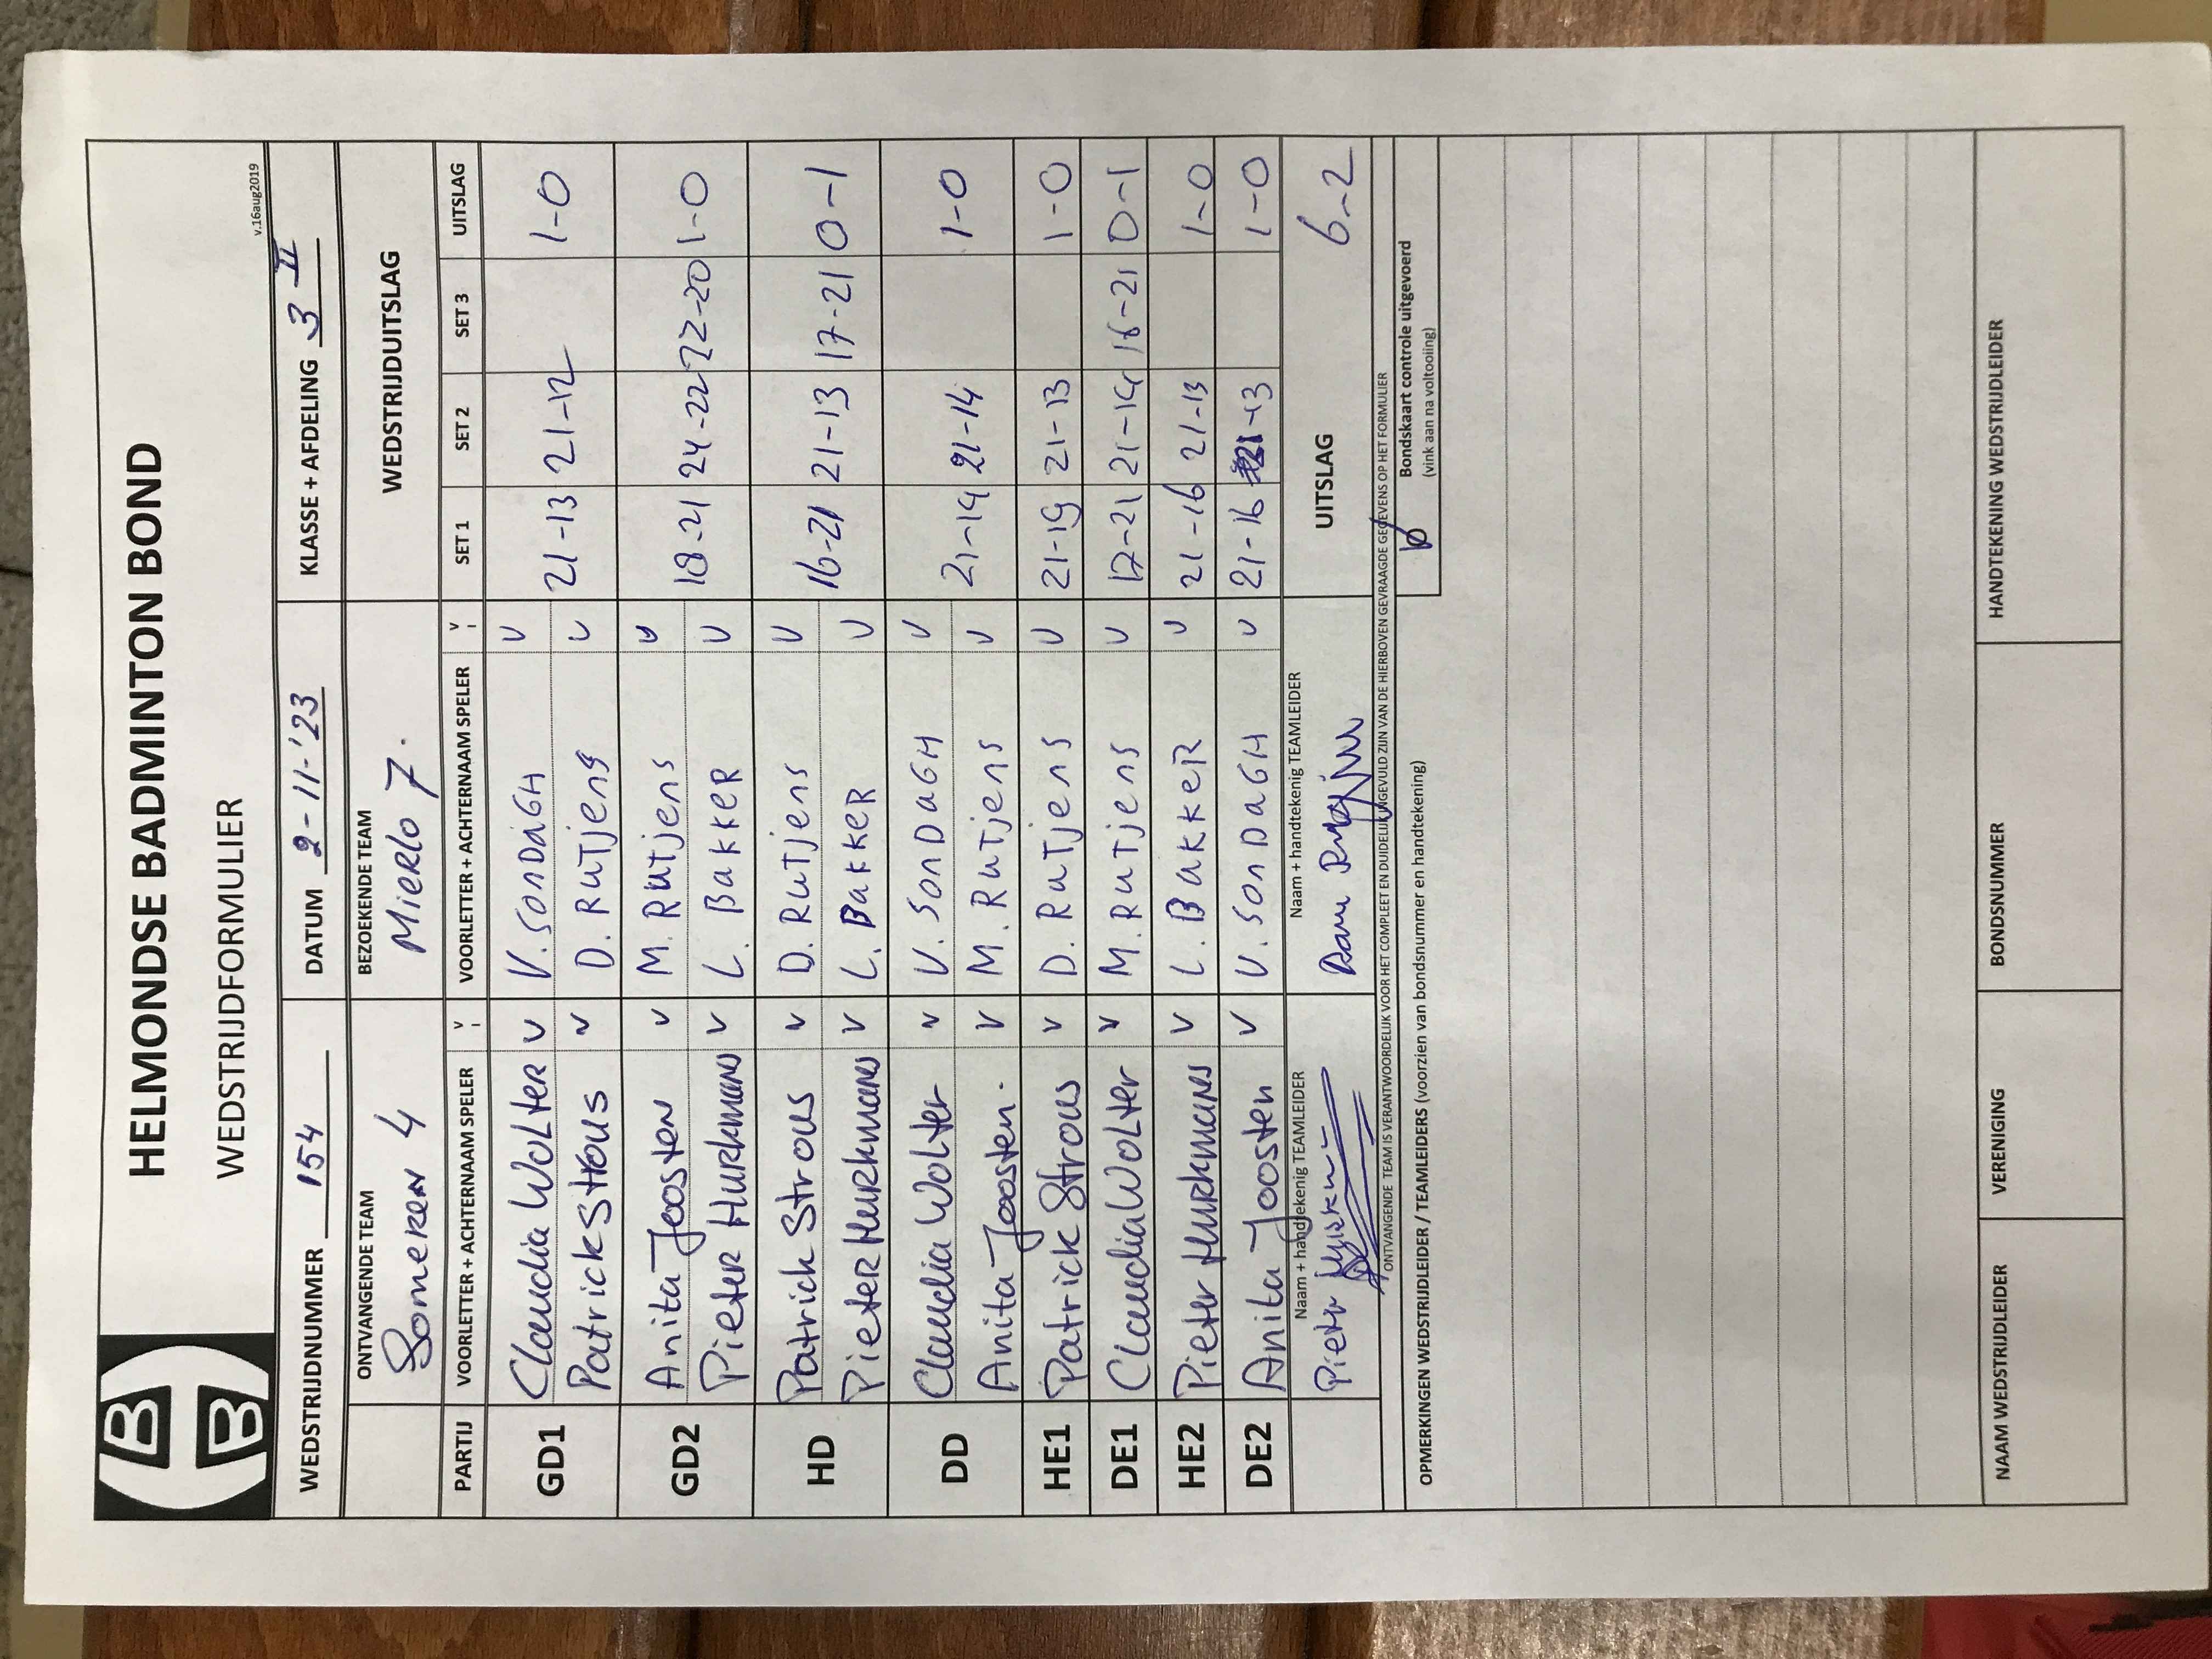 HBB
HELMONDSE BADMINTON BOND
WEDSTRIJDFORMULIER
v.16aug2019
WEDSTRIJDNUMMER 154 DATUM 2-11-'23 KLASSE + AFDELING 3 II
ONTVANGENDE TEAM BEZOEKENDE TEAM WEDSTRIJDUITSLAG
Someren 4 Mierlo 7.
PARTIJ VOORLETTER + ACHTERNAAM SPELER V VOORLETTER + ACHTERNAAM SPELER V SET 1 SET 2 SET 3 UITSLAG
GD1 Claudia Wolter V V. SONDAGH V 21-13 21-12 1-0
Patrick Strous V D. Rutjens V
GD2 Anita Joosten V M. Rutjens V 18-21 24-22 22-20 1-0
Pieter Hurkmans V L. Bakker V
HD Patrick Strous V D. Rutjens V 16-21 21-13 17-21 0-1
Pieter Hurkmans V L. Bakker V
DD Claudia Wolter V V. SONDAGH V 21-19 21-14 1-0
Anita Joosten. V M. Rutjens V
HE1 Patrick Strous V D. Rutjens V 21-19 21-13 1-0
DE1 Claudia Wolter V M. Rutjens V 12-21 21-14 16-21 0-1
HE2 Pieter Hurkmans V L. Bakker V 21-16 21-13 1-0
DE2 Anita Joosten V V. SONDAGH V 21-16 21-13 1-0
Naam + handtekenig TEAMLEIDER Naam + handtekenig TEAMLEIDER UITSLAG 6-2
Pieter
ONTVANGENDE TEAM IS VERANTWOORDELIJK VOOR HET COMPLEET EN DUIDELIJK INGEVULD ZIJN VAN DE HIERBOVEN GEVRAAGDE GEGEVENS OP HET FORMULIER
Bondskaart controle uitgevoerd
(vink aan na voltooiing)
OPMERKINGEN WEDSTRIJDLEIDER / TEAMLEIDERS (voorzien van bondsnummer en handtekening)
NAAM WEDSTRIJDLEIDER VERENIGING BONDSNUMMER HANDTEKENING WEDSTRIJDLEIDER